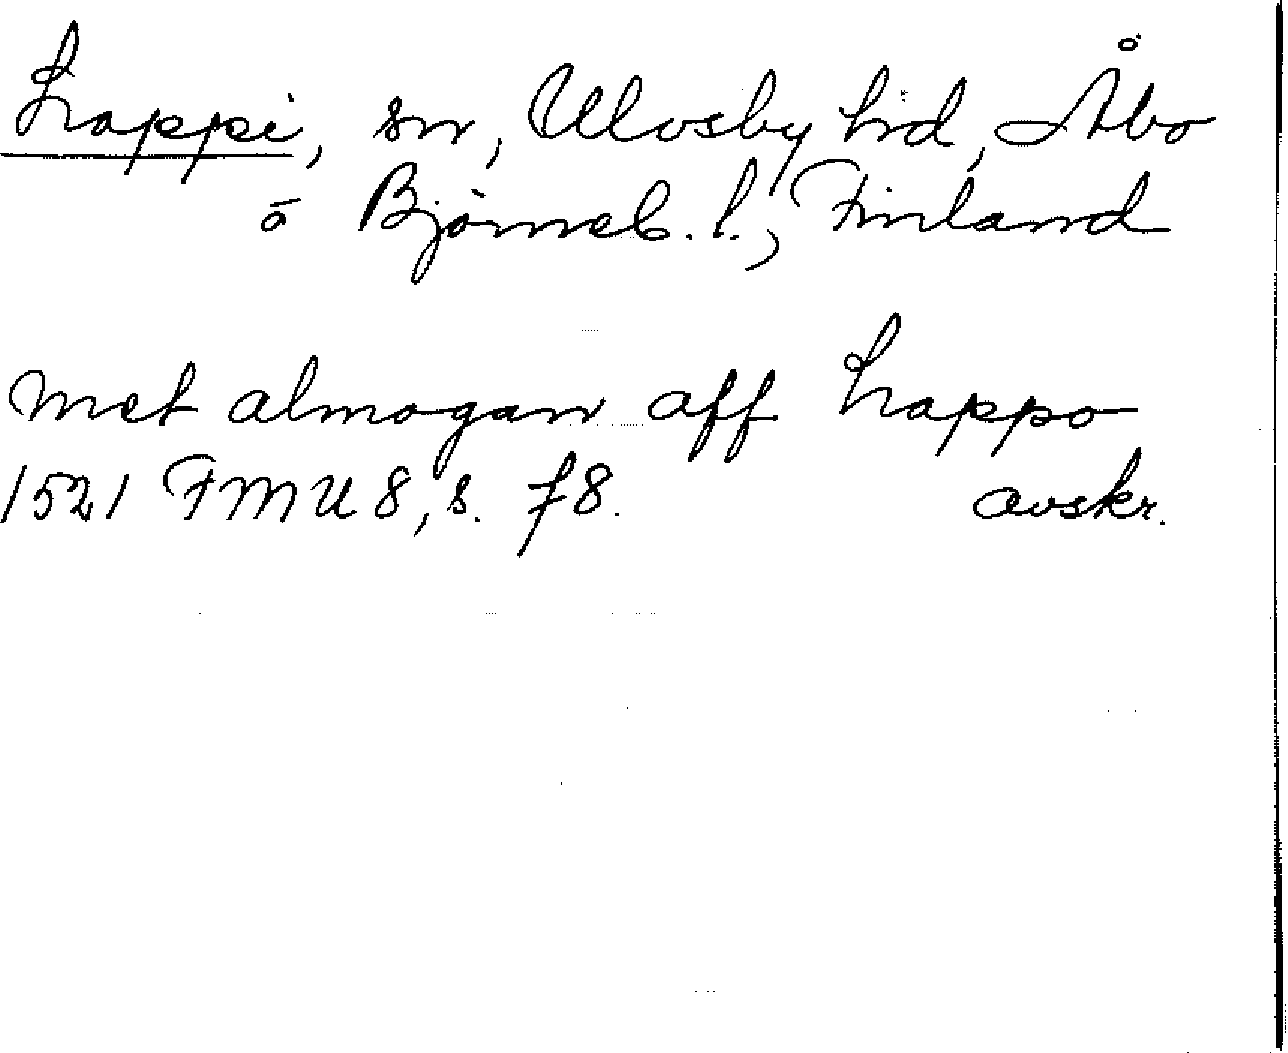 Lappi, sn, Ulvsby hd, Åbo
o Björneb. l., Finland
met almogan aff Lappo
1521 FMU 8, s. 78. avskr.